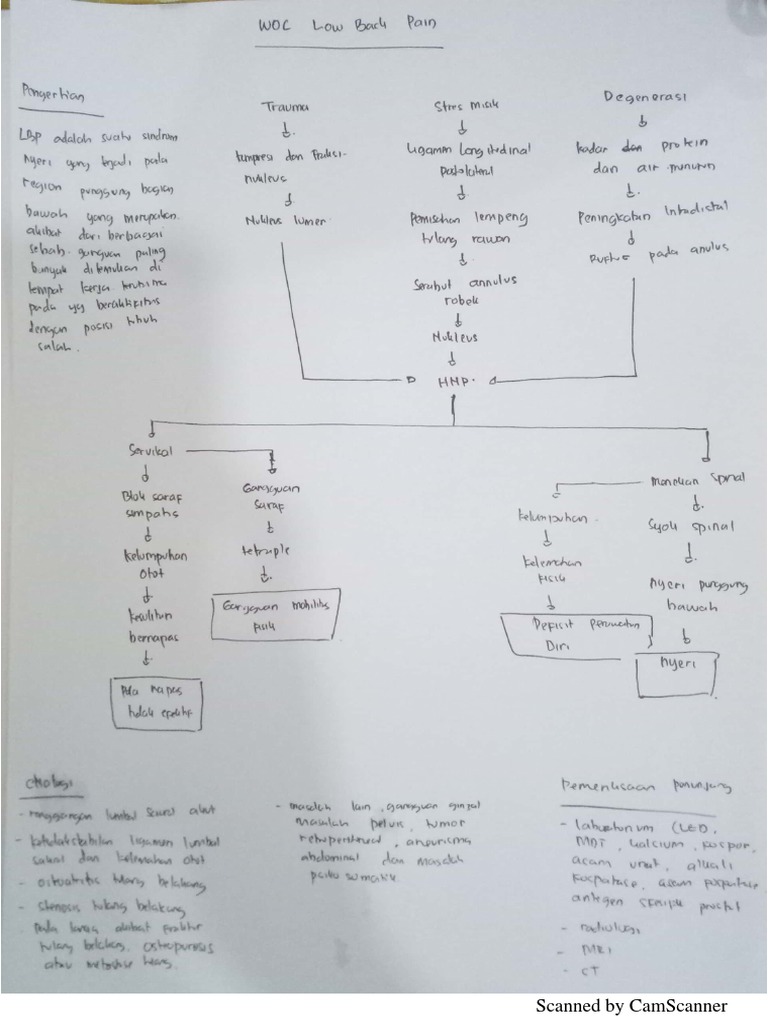 WOC Low Back Pain
Pengertian
LBP adalah suatu sindrom
nyeri yang terjadi pada
region punggung bagian
bawah yang merupakan
akibat dari berbagai
sebab. gangguan paling
banyak ditemukan di
tempat kerja terutama
pada yg beraktifitas
dengan posisi tubuh
salah.
Trauma
kompresi dan Traksi
nukleus
Nukleus
Stres
Ligamen Longitidinal
Pemisahan lempeng
tulang rawan
Serabut annulus
robek
Nukleus
Degenerasi
kadar dan protein
dan air menurun
Peningkatan Intadistal
Ruptur pada anulus
HNP.
Servikal
Blok saraf
simpatis
kelumpuhan
Otot
kesulitan
bernapas
Pola napas
tidak efektif
Gangguan
saraf
Gangguan mobilitas
fisik
Menekan Spinal
Syok spinal
nyeri punggung
bawah
nyeri
kelumpuhan
kelemahan
fisik
Defisit Perawatan
Diri
etiologi
- regangan lumbal akut
- ketidakstabilan ligamen lumbal
sakral dan kelemahan otot
- tulang belakang
- Stenosis tulang belakang
pada akibat fraktur
tulang belakang, osteoporosis
atau
- masalah lain, gangguan ginjal
masalah pelvis, tumor
retroperitoneal, aneurisma
abdominal dan masalah
psiko somatik.
Pemeriksaan penunjang
- laboratorium (LED,
kalsium, fospor,
asam urat, alkali
fosfatase, asam fosfatase
antigen
- radiologi
- MRI
- CT
Scanned by CamScanner